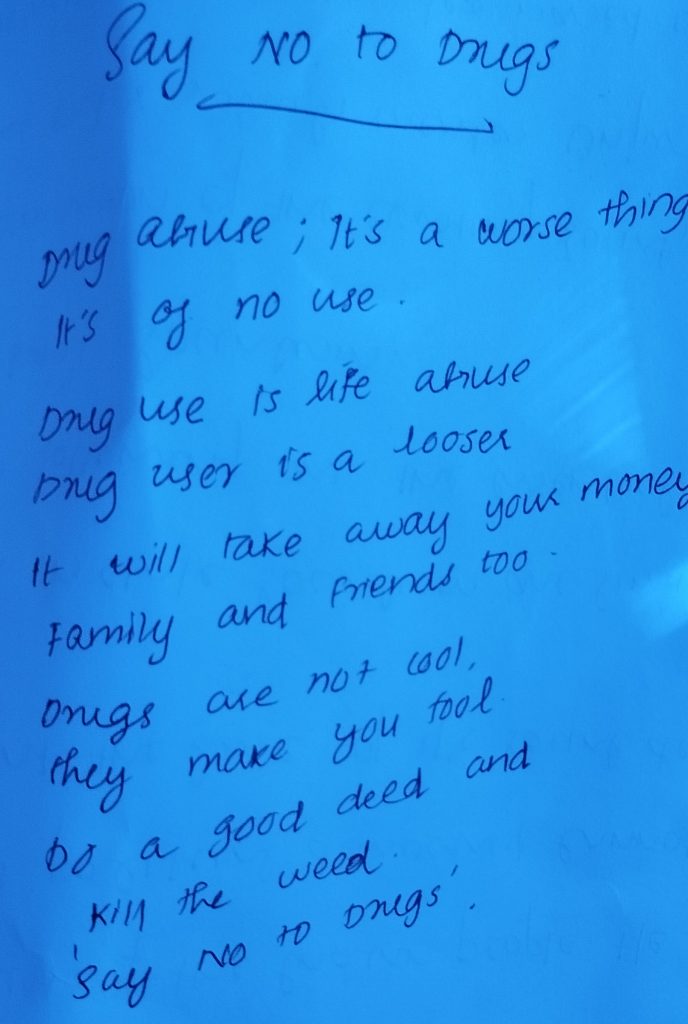 Say NO to Drugs
Drug abuse ; It's a worse thing
It's of no use .
Drug use is life abuse
Drug user is a looser
It will take away your money
Family and friends too .
Drugs are not cool,
they make you fool.
Do a good deed and
Kill the weed.
'Say NO to Drugs'.